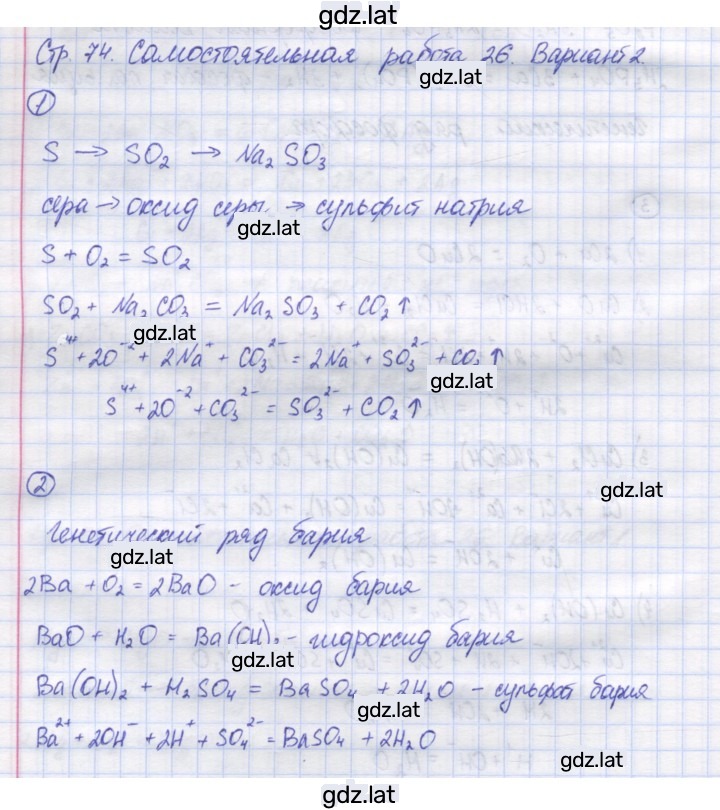 gdz.lat
Стр. 74. Самостоятельная работа 26. Вариант 2.
gdz.lat
1
S → SO₂ → Na₂SO₃
сера → оксид серы → сульфит натрия
gdz.lat
S + O₂ = SO₂
SO₂ + Na₂CO₃ = Na₂SO₃ + CO₂↑
gdz.lat
S⁴⁺ + 2O⁻² + 2Na⁺ + CO₃²⁻ = 2Na⁺ + SO₃²⁻ + CO₂↑
gdz.lat
S⁴⁺ + 2O⁻² + CO₃²⁻ = SO₃²⁻ + CO₂↑
2
gdz.lat
Генетический ряд бария
gdz.lat
2Ba + O₂ = 2BaO - оксид бария
BaO + H₂O = Ba(OH)₂ - гидроксид бария
gdz.lat
Ba(OH)₂ + H₂SO₄ = BaSO₄ + 2H₂O - сульфат бария
gdz.lat
Ba²⁺ + 2OH⁻ + 2H⁺ + SO₄²⁻ = BaSO₄ + 2H₂O
gdz.lat
gdz.lat